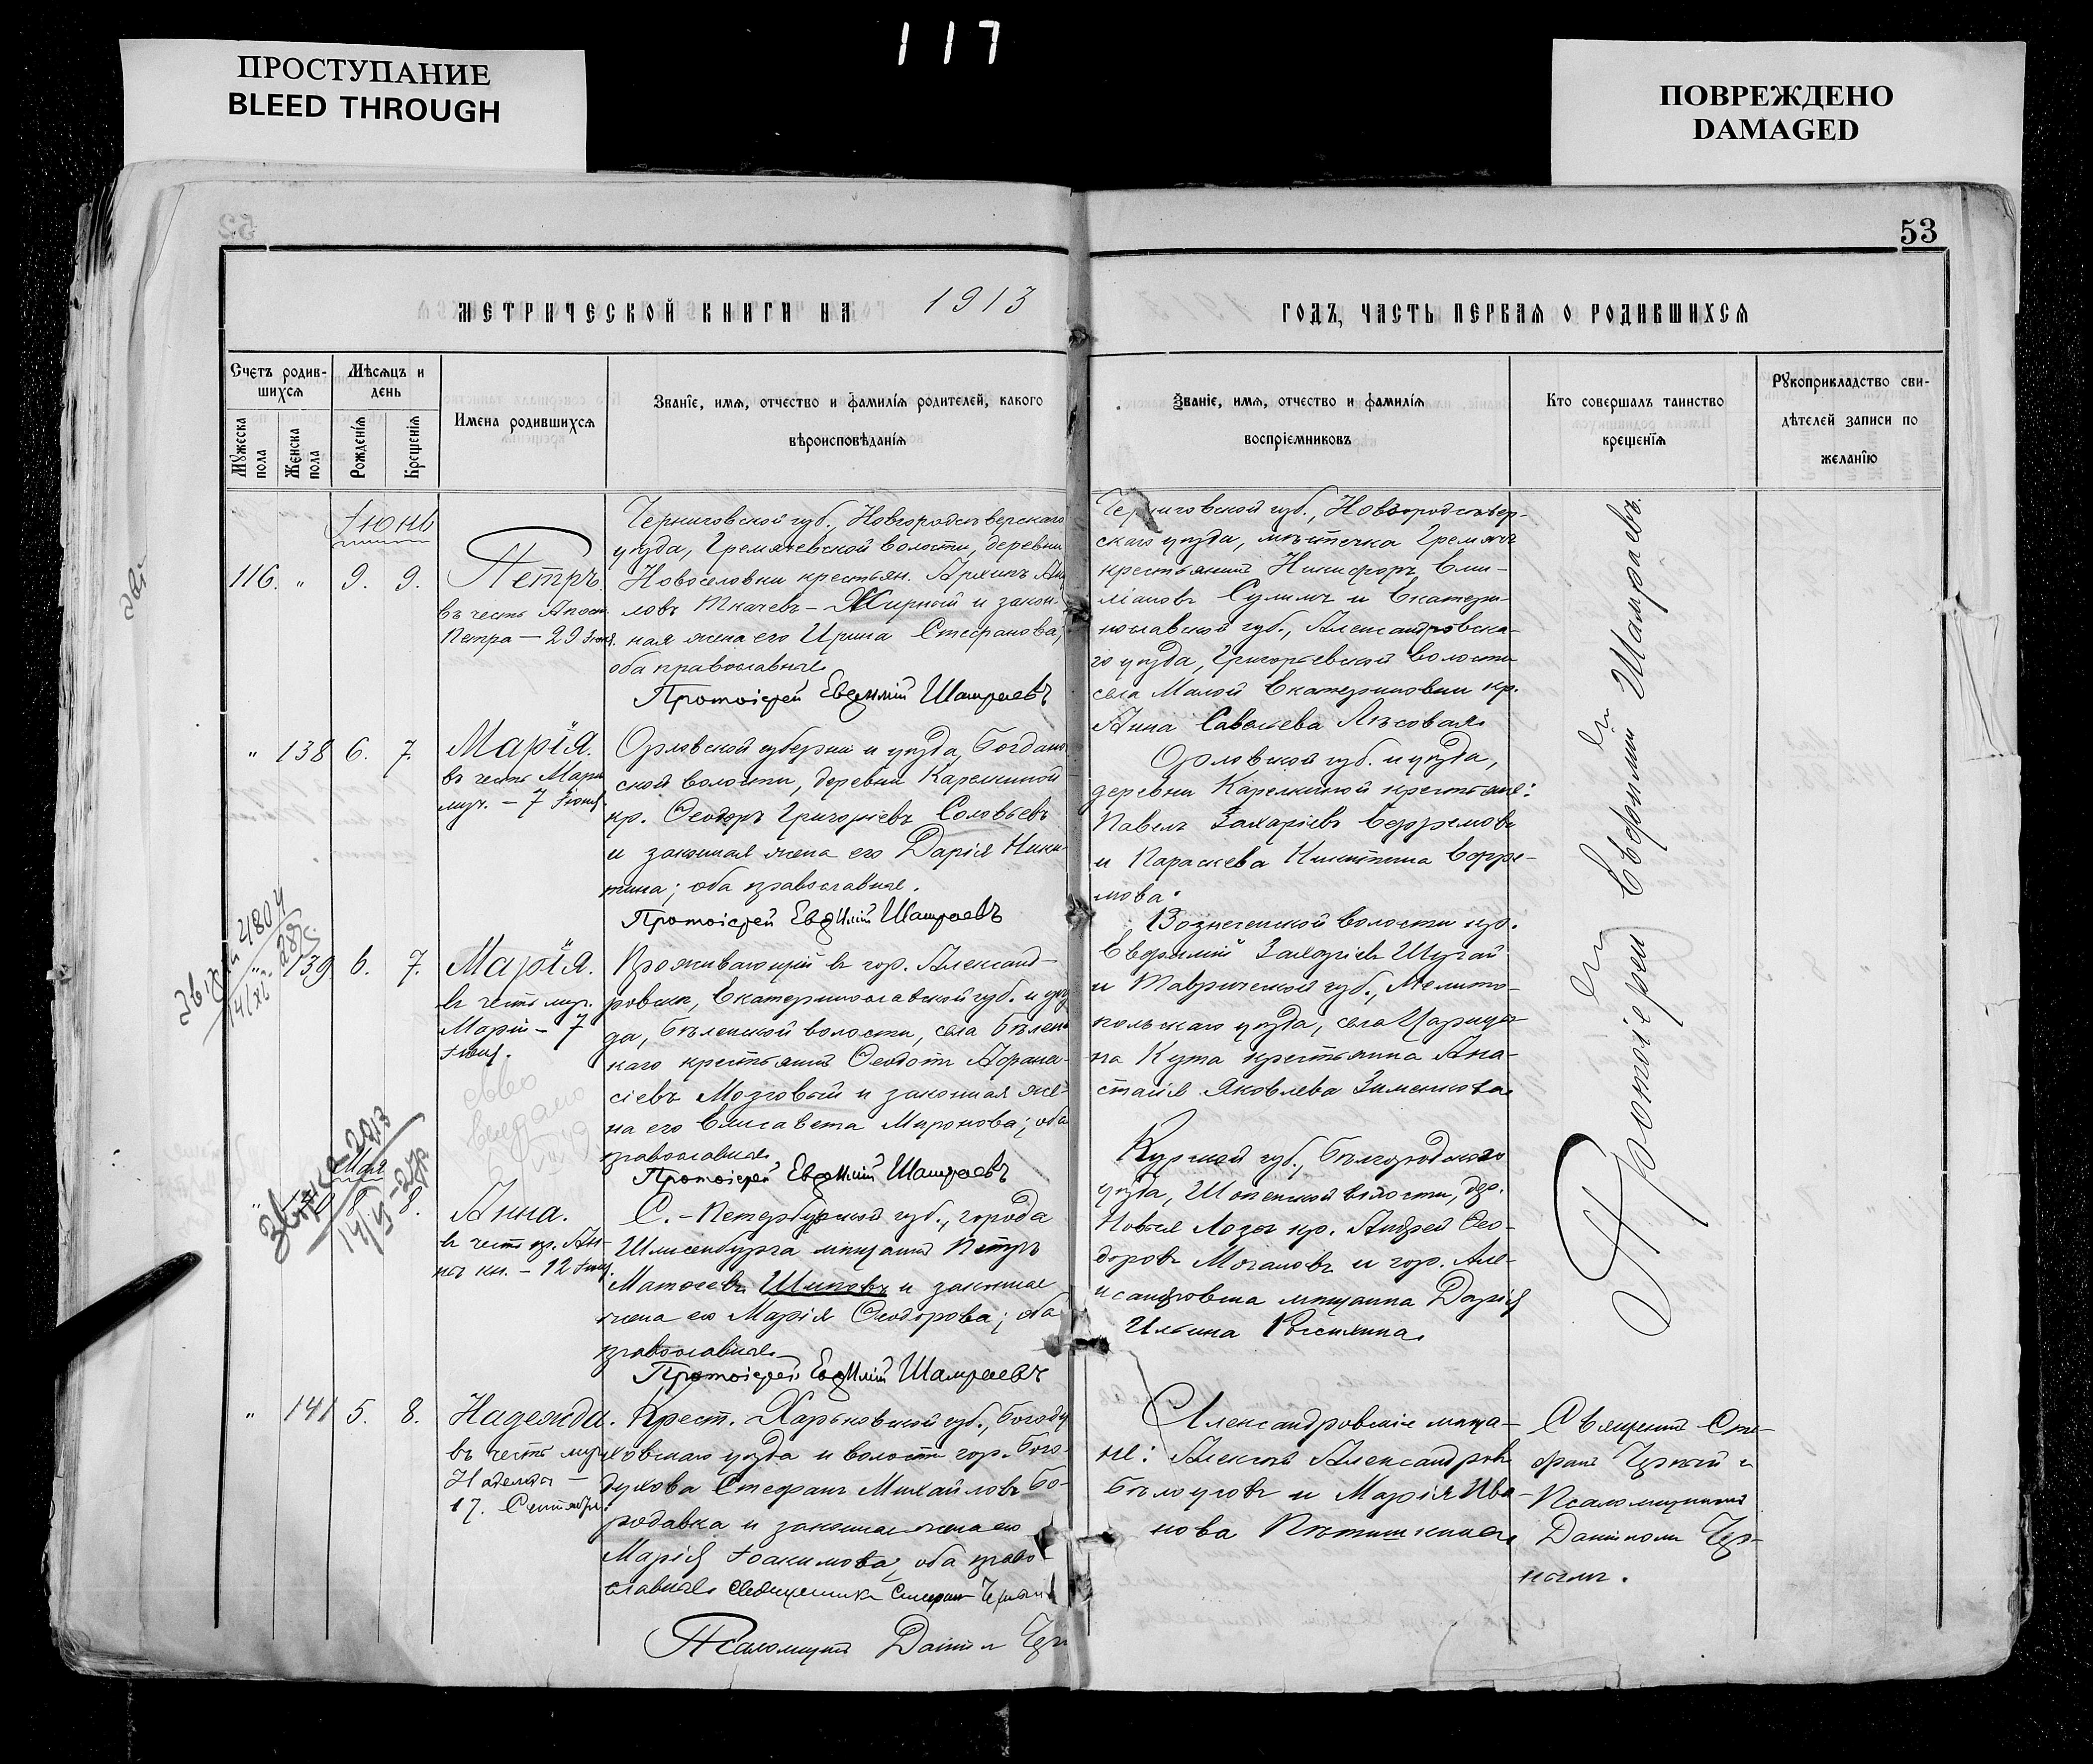 117
ПРОСТУПАНИЕ
BLEED THROUGH
ПОВРЕЖДЕНО
DAMAGED
53
МЕТРИЧЕСКОЙ КНИГИ НА 1913
ГОДЪ, ЧАСТЬ ПЕРВАЯ О РОДИВШИХСЯ
Счетъ родив-
шихся
Мѣсяцъ и
день
Мужеска
пола
Женска
пола
Рожденія
Крещенія
Имена родившихся
Званіе, имя, отчество и фамилія родителей, какого
вѣроисповѣданія
Званіе, имя, отчество и фамилія
воспріемниковъ
Кто совершалъ таинство
крещенія
Рукоприкладство сви-
дѣтелей записи по
желанію
Іюнь
116. " 9. 9.
Петръ
въ честь Апост.
Петра - 29 Іюня
Черниговской губ., Новгородсѣверскаго
уѣзда, Гремячевской волости, деревни
Новоселовки крестьян. Архипъ
ловъ Ткачевъ - Жирный и закон-
ная жена его Ирина Стефанова,
оба православные
Протоіерей Евѳимій Шамраевъ
Черниговской губ., Новгородсѣвер-
скаго уѣзда, мѣстечка Гремячъ
крестьянинъ Никифоръ Еми-
ліановъ Сулимъ и Екатери-
нославской губ., Александровска-
го уѣзда, Григорьевской волости
села Малой Екатериновки кр.
Анна Савельева Лѣсовая
" 138 6. 7.
Марія.
въ честь Маріи
муч. - 7 Іюня
Орловской губерніи и уѣзда, Богданов
ской волости, деревни Карелкиной
кр. Ѳеодоръ Григоріевъ Соловьевъ
и законная жена его Дарія Ники-
тина; оба православные.
Протоіерей Евѳимій Шамраевъ
Орловской губ. и уѣзда,
деревни Карелкиной крестьяне:
Павелъ Захаріевъ Ефремовъ
и Параскева Никитина Ефре-
мова.
" 139 6. 7.
Марія.
въ честь муч.
Маріи - 7
Іюня.
Проживающій въ гор. Александ-
ровскѣ, Екатеринославской губ. и уѣз
да, Бѣленской волости, села Бѣлень
каго крестьянинъ Ѳеодотъ Афана-
сіевъ Мозговый и законная же-
на его Елисавета Миронова; оба
православные
Протоіерей Евѳимій Шамраевъ
Вознесенской волости кр.
Евфимій Захаріевъ Шугай
и Таврической губ., Мелито-
польскаго уѣзда, села Царицы-
на Кута крестьянка Ана-
стасія Яковлева Зименкова
Мая
8. 8.
Анна.
въ честь пр. Ан-
ны кн. - 12 Іюня.
С.-Петербургской губ., города
Шлисенбурга мѣщанинъ Петръ
Матѳеевъ Шиповъ и законная
жена его Марія Ѳеодорова; оба
православные
Протоіерей Евѳимій Шамраевъ
Курской губ., Бѣлгородскаго
уѣзда, Шопенской волости, дер.
Новыя Лозы кр. Андрей Ѳео-
доровъ Мочаловъ и гор. Але-
ксандровска мѣщанка Дарія
Ильина
Протоіерей Евфимій Шамраевъ
" 141 5. 8.
Надежда.
въ честь муч.
Надежды -
17. Сентября.
Крест. Харьковской губ., Богоду
ховскаго уѣзда и волости гор. Бого-
духова Стефанъ Михайловъ Бо-
родавка и законная жена его
Марія Іоакимова, оба право-
славные Священникъ Стефанъ Черный
Псаломщикъ Даніилъ
Александровскіе мѣща-
не: Алексѣй Александровъ
Бѣлоусовъ и Марія Ива-
нова Пѣтишкина
Священникъ Сте-
фанъ Черный съ
Псаломщикомъ
Даніиломъ Чер-
нымъ.